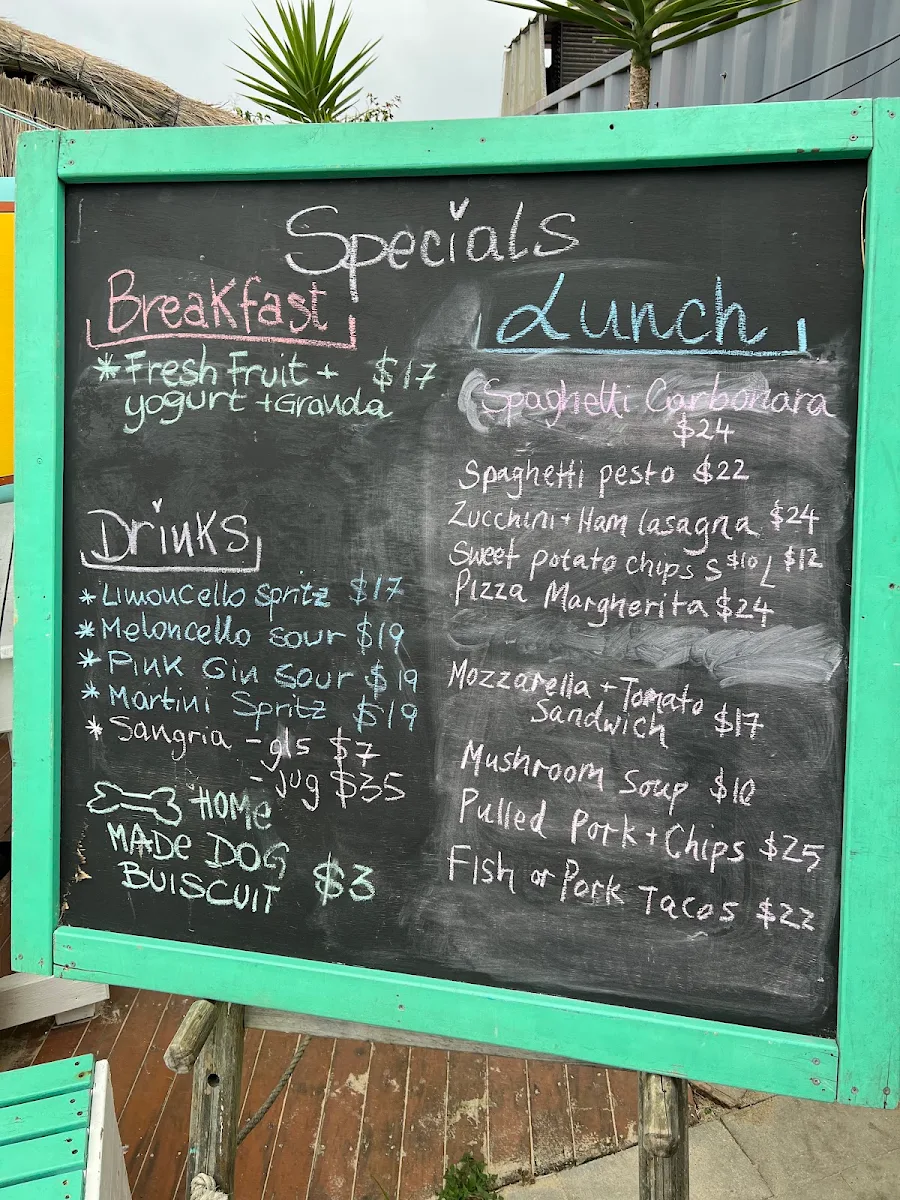 Specials
Breakfast
* Fresh Fruit + $17
yogurt + Granola
Drinks
* Limoncello spritz $17
* Meloncello sour $19
* Pink Gin sour $19
* Martini Spritz $19
* Sangria - gls $7
- jug $35
HOME
MADE DOG
BUISCUIT $3
Lunch
Spaghetti Carbonara
$24
Spaghetti pesto $22
Zucchini + Ham lasagna $24
Sweet potato chips S $10 L $12
Pizza Margherita $24
Mozzarella + Tomato
Sandwich $17
Mushroom Soup
Pulled Pork + Chips $25
Fish or Pork Tacos $22